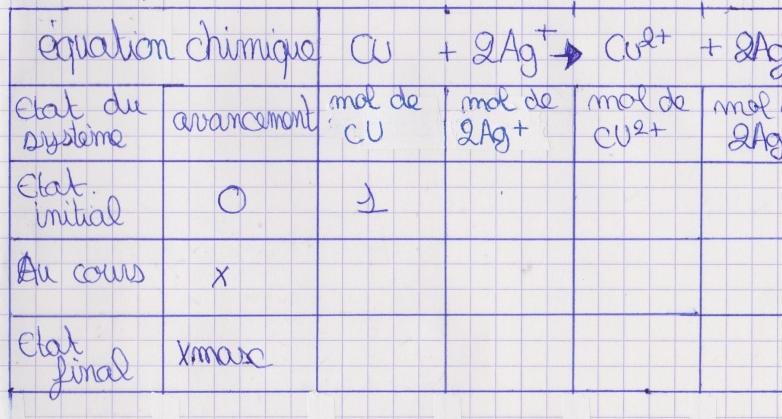 équation chimique Cu + 2Ag⁺ → Cu²⁺ + 2Ag
Etat du système avancement mol de Cu mol de 2Ag+ mol de Cu²+ mol 2Ag
Etat initial 0 1
Au cours x
Etat final xmax